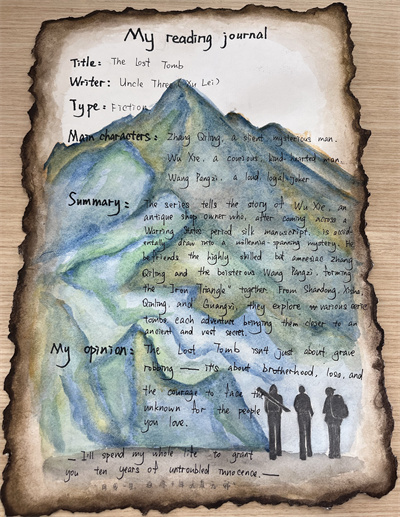 My reading journal
Title: The Lost Tomb
Writer: Uncle Three (Xu Lei)
Type: Fiction
Main characters: Zhang Qiling, a silent, mysterious man.
Wu Xie, a curious, kind-hearted man.
Wang Pangzi, a loud, loyal joker
Summary: The series tells the story of Wu Xie, an
antique shop owner who, after coming across a
Warring States period silk manuscript, is accid-
entally draw into a millennia-spanning mystery. He
befriends the highly skilled but amnesiac Zhang
Qiling and the boisterous Wang Pangzi, forming
the "Iron Triangle" together. From Shandong, Xisha,
Qinling and Guangxi, they explore various
tombs, each adventure bringing them closer to an
ancient and vast secret.
My opinion: The Lost Tomb isn't just about grave
robbing — it's about brotherhood, loss, and
the courage to face the
unknown for the people
you love.
— I'll spend my whole life to grant
you ten years of untroubled innocence. —